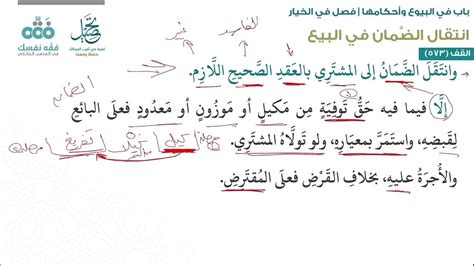 باب في البيوع وأحكامها | فصل في الخيار
انتقال الضَّمان في البيع
القف (٥٧٣)
فقه نفسك
- وانتَقلَ الضَّمَانُ إلى المشتَرِي بالعَقدِ الصَّحيحِ اللَّازِمِ.
إلَّا فيما فيه حَقُّ تَوفِيَةٍ مِن مَكيلٍ أو مَوزُونٍ أو مَعدُودٍ فعلَى البائعِ
لِقَبضِه، واستَمَرَّ بمعيَارِه، ولو تَولَّاهُ المشتَرِي.
والأُجرَةُ عليهِ، بخلافِ القَرْضِ فعلَى المُقتَرِضِ.